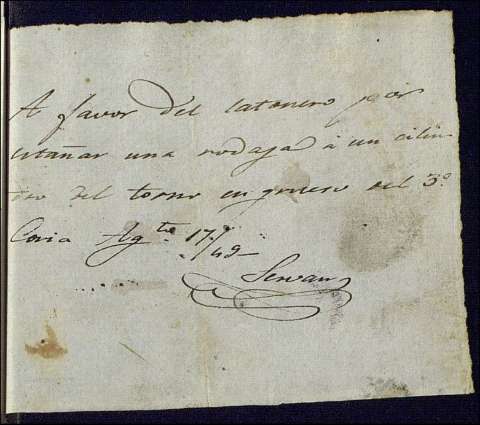 A favor del latonero por
estañar una rodaja à un cilin-
dro del torno en grueso del 3º
Agto 17//49
Servan